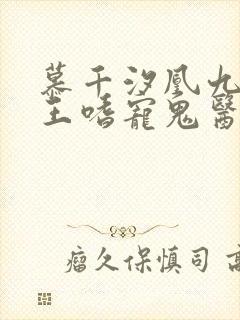 慕千汐凰九
王嗜寵鬼醫
瘤久保慎司 高